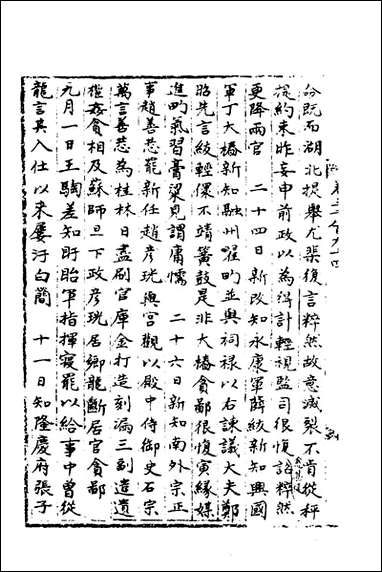 分既而湖北提舉尤槩復言粹然故意滅裂不肯從秤
提約束昨妄申前政以為得計輕視監司很愎詔粹然
更降兩官　二十四日新改知永康軍薛紋新知興國
軍丁大椿新知融州翟畋並與祠祿以右諫議大夫鄭
昭先言紋輕儇不靖簧鼓是非大椿貪鄙很愎寅緣媒
進畋氣習膏粱見謂庸懦　二十六日新知南外宗正
事趙善𢙀罷新任趙彥珖與宮觀以殿中侍御史石宗
萬言善𢙀為桂林日盡刷官庫金打造刻漏三副遺
權姦貪相及蘇師旦下政彥珖居鄉龍斷居官貪鄙
九月一日王騊差知盱眙軍指揮寢罷以給事中曾從
龍言其入仕以來屢汙白簡　十一日知隆慶府張子